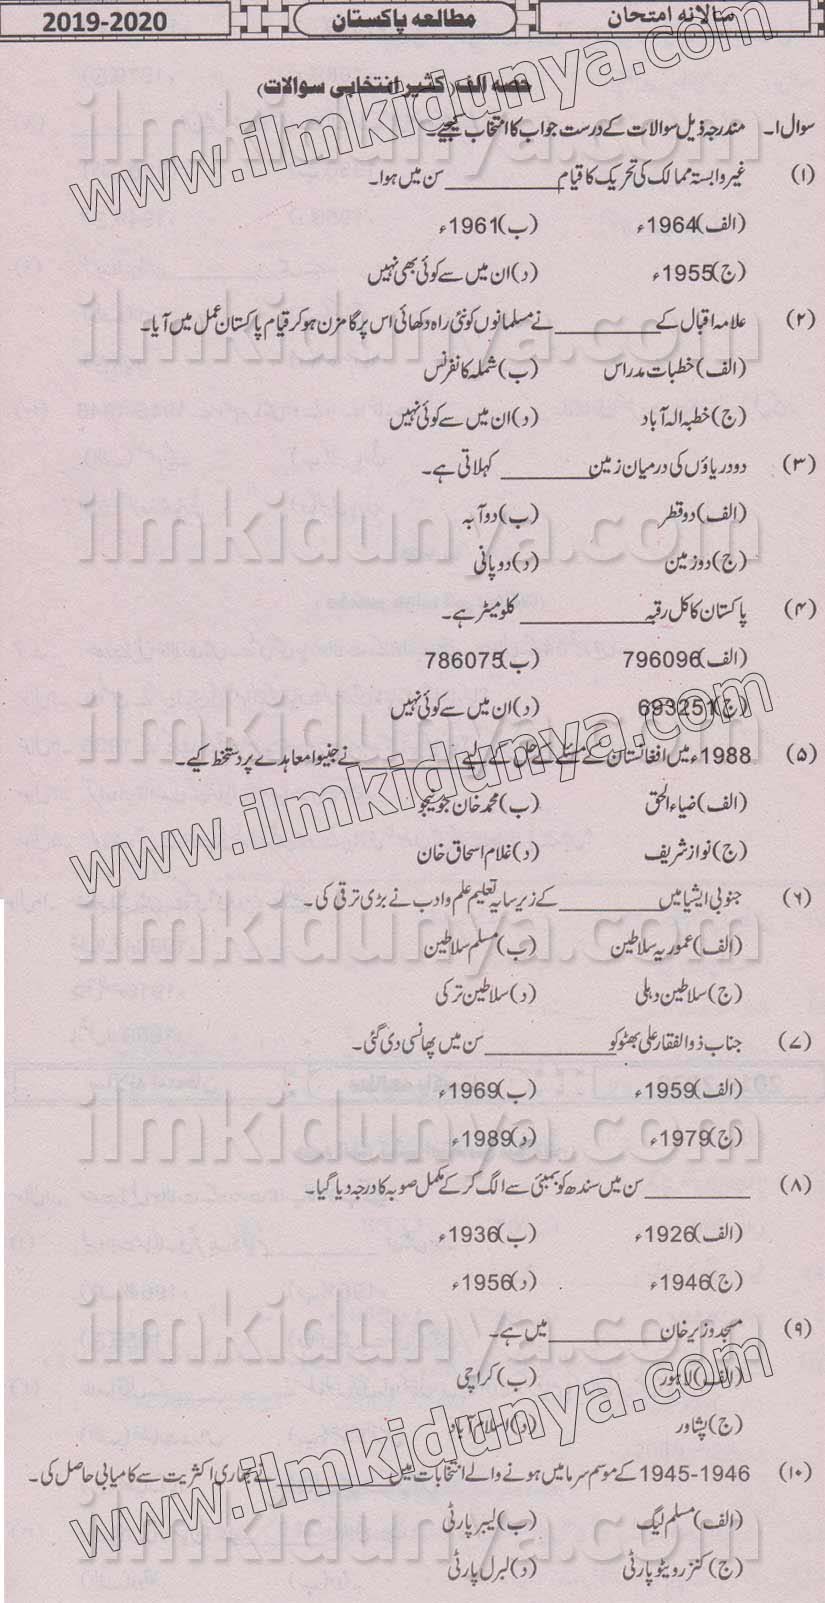 سالانہ امتحان
مطالعہ پاکستان
2019-2020
حصہ الف (کثیر انتخابی سوالات)
سوال ۱۔ مندرجہ ذیل سوالات کے درست جواب کا انتخاب کیجیے۔
(۱) غیر وابستہ ممالک کی تحریک کا قیام __________ سن میں ہوا۔
(الف) 1964ء (ب) 1961ء
(ج) 1955ء (د) ان میں سے کوئی بھی نہیں
(۲) علامہ اقبال کے __________ نے مسلمانوں کو نئی راہ دکھائی اس پر گامزن ہو کر قیام پاکستان عمل میں آیا۔
(الف) خطبات مدراس (ب) شملہ کانفرنس
(ج) خطبہ الہ آباد (د) ان میں سے کوئی نہیں
(۳) دو دریاؤں کی درمیان زمین __________ کہلاتی ہے۔
(الف) دو قطر (ب) دو آبہ
(ج) دو زمین (د) دو پانی
(۴) پاکستان کا کل رقبہ __________ کلو میٹر ہے۔
(الف) 796096 (ب) 786075
(ج) 693251 (د) ان میں سے کوئی نہیں
(۵) 1988ء میں افغانستان کے مسئلے کے حل کے لیے __________ نے جنیوا معاہدے پر دستخط کیے۔
(الف) ضیاء الحق (ب) محمد خان جونیجو
(ج) نواز شریف (د) غلام اسحاق خان
(۶) جنوبی ایشیا میں __________ کے زیر سایہ تعلیم علم و ادب نے بڑی ترقی کی۔
(الف) عموریہ سلاطین (ب) مسلم سلاطین
(ج) سلاطین دہلی (د) سلاطین ترکی
(۷) جناب ذوالفقار علی بھٹو کو __________ سن میں پھانسی دی گئی۔
(الف) 1959ء (ب) 1969ء
(ج) 1979ء (د) 1989ء
(۸) __________ سن میں سندھ کو بمبئی سے الگ کر کے مکمل صوبہ کا درجہ دیا گیا۔
(الف) 1926ء (ب) 1936ء
(ج) 1946ء (د) 1956ء
(۹) مسجد وزیر خان __________ میں ہے۔
(الف) لاہور (ب) کراچی
(ج) پشاور (د) اسلام آباد
(۱۰) 1945-1946 کے موسم سرما میں ہونے والے انتخابات میں __________ نے بھاری اکثریت سے کامیابی حاصل کی۔
(الف) مسلم لیگ (ب) لیبر پارٹی
(ج) کنزرویٹو پارٹی (د) لبرل پارٹی
www.ilmkidunya.com
www.ilmkidunya.com
www.ilmkidunya.com
ilmkidunya.com
ilmkidunya.com
ilmkidunya.com
ilmkidunya.com
ilmkidunya.com
ilmkidunya.com
ilmkidunya.com
ilmkidunya.com